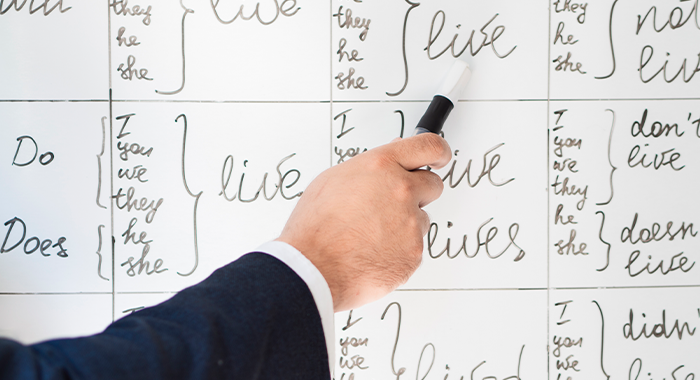 they
he
she
live
they
he
she
live
they
he
she
not
live
Do
Does
I
you
we
they
he
she
live
I
live
lives
I
you
we
they
don't
live
he
she
doesn
live
I
you
we
they
I
you
we
didn't